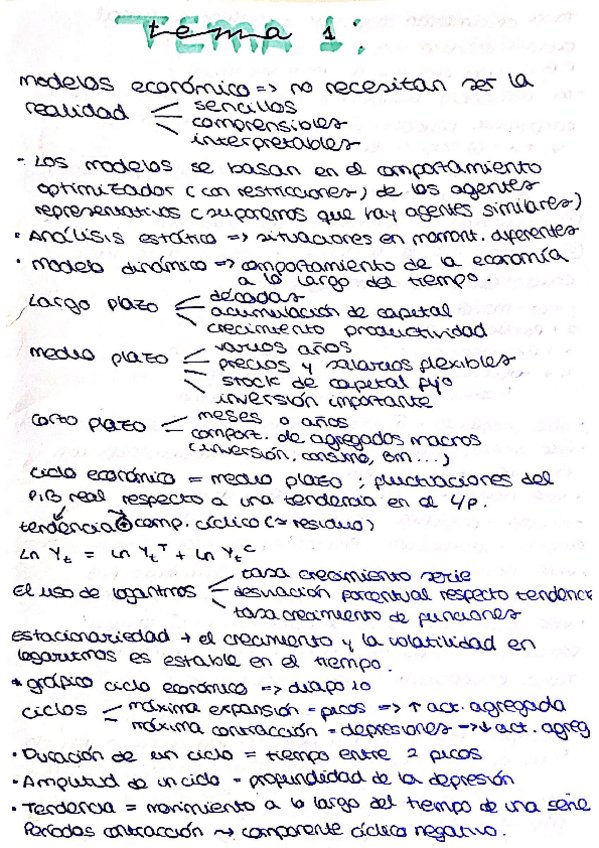 TEMA 1:
tema
modelos económico => no necesitan ser la
realidad
sencillos
comprensibles
interpretables
- Los modelos se basan en el comportamiento
optimizador (con restricciones) de los agentes
representativos (suponemos que hay agentes similares)
• Análisis estático => situaciones en moment. diferentes
• modelo dinámico => comportamiento de la economía
a lo largo del tiempo.
Largo plazo
décadas
acumulación de capital
crecimiento productividad
medio plazo
varios años
precios y salarios flexibles
stock de capital fijo
inversión importante
corto plazo
meses o años
comport. de agregados macros
(inversión, consumo, Bm...)
ciclo económico = medio plazo ; fluctuaciones del
PIB real respecto a una tendencia en el l/p.
tendencia + comp. cíclico (≈ residuo)
Ln Yt = Ln Yt^T + Ln Yt^C
El uso de logaritmos
tasa crecimiento serie
desviación porcentual respecto tendencia
tasa crecimiento de funciones
estacionariedad → el crecimiento y la volatilidad en
logaritmos es estable en el tiempo.
* gráfico ciclo económico => diapo 10
ciclos
máxima expansión = picos => ↑ act. agregada
máxima contracción = depresiones -> ↓ act. agreg
• Duración de un ciclo = tiempo entre 2 picos
• Amplitud de un ciclo = profundidad de la depresión
• Tendencia = movimiento a lo largo del tiempo de una serie
Períodos contracción ~> componente cíclico negativo.